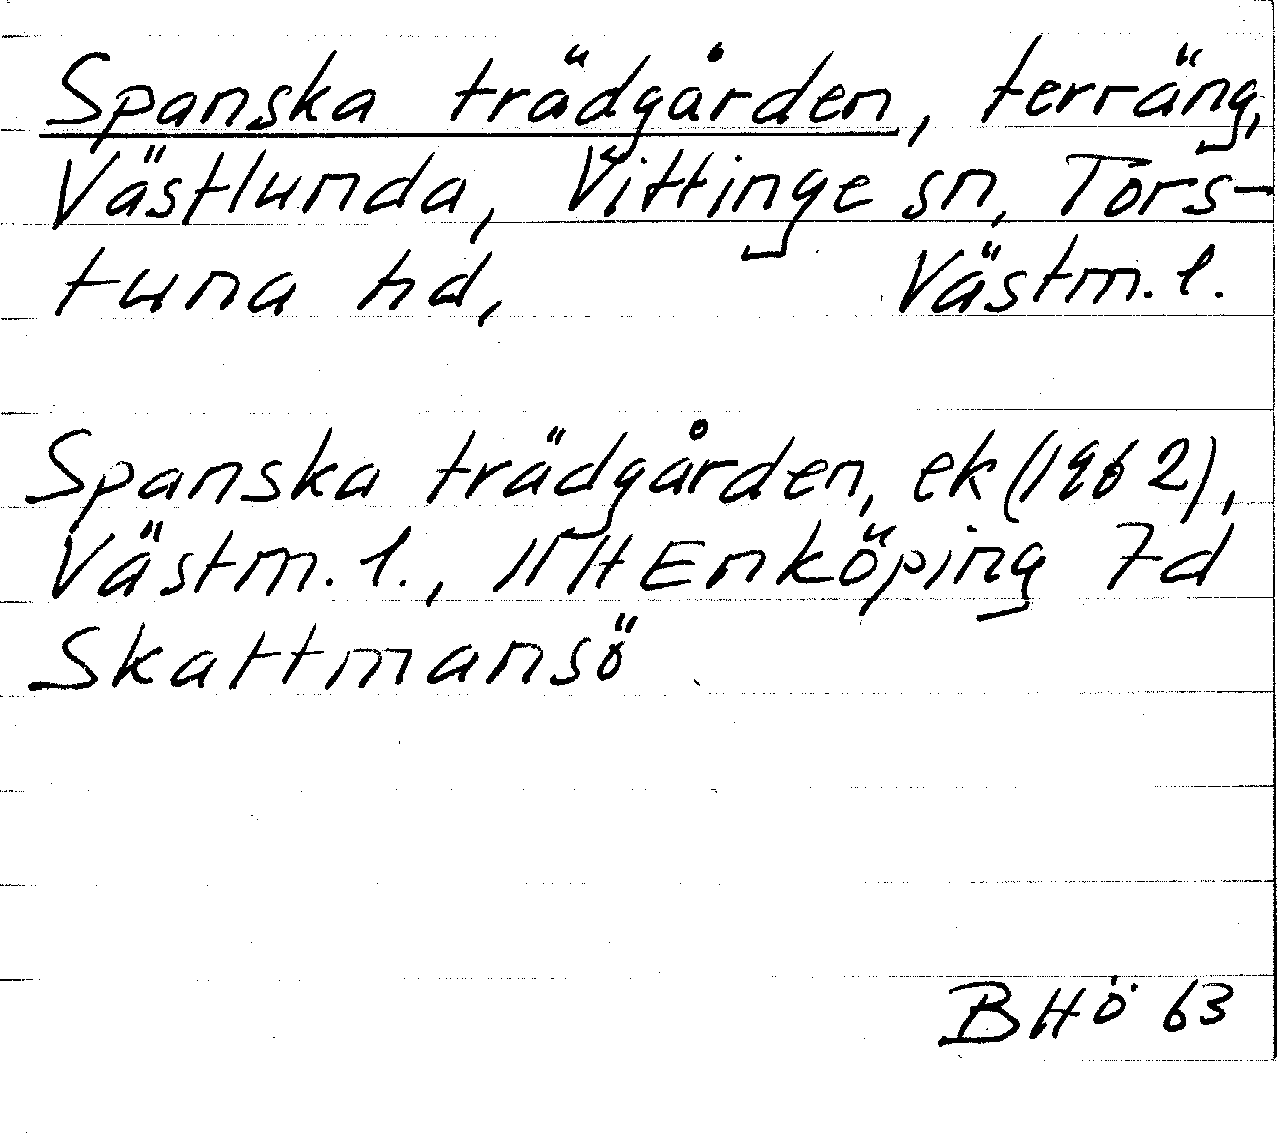 Spanska trädgården, terräng,
Västlunda, Vittinge sn, Tors-
tuna hd, Västm. l.
Spanska trädgården, ek (1962),
Västm. l., 11H Enköping 7d
Skattmansö
BHö 63